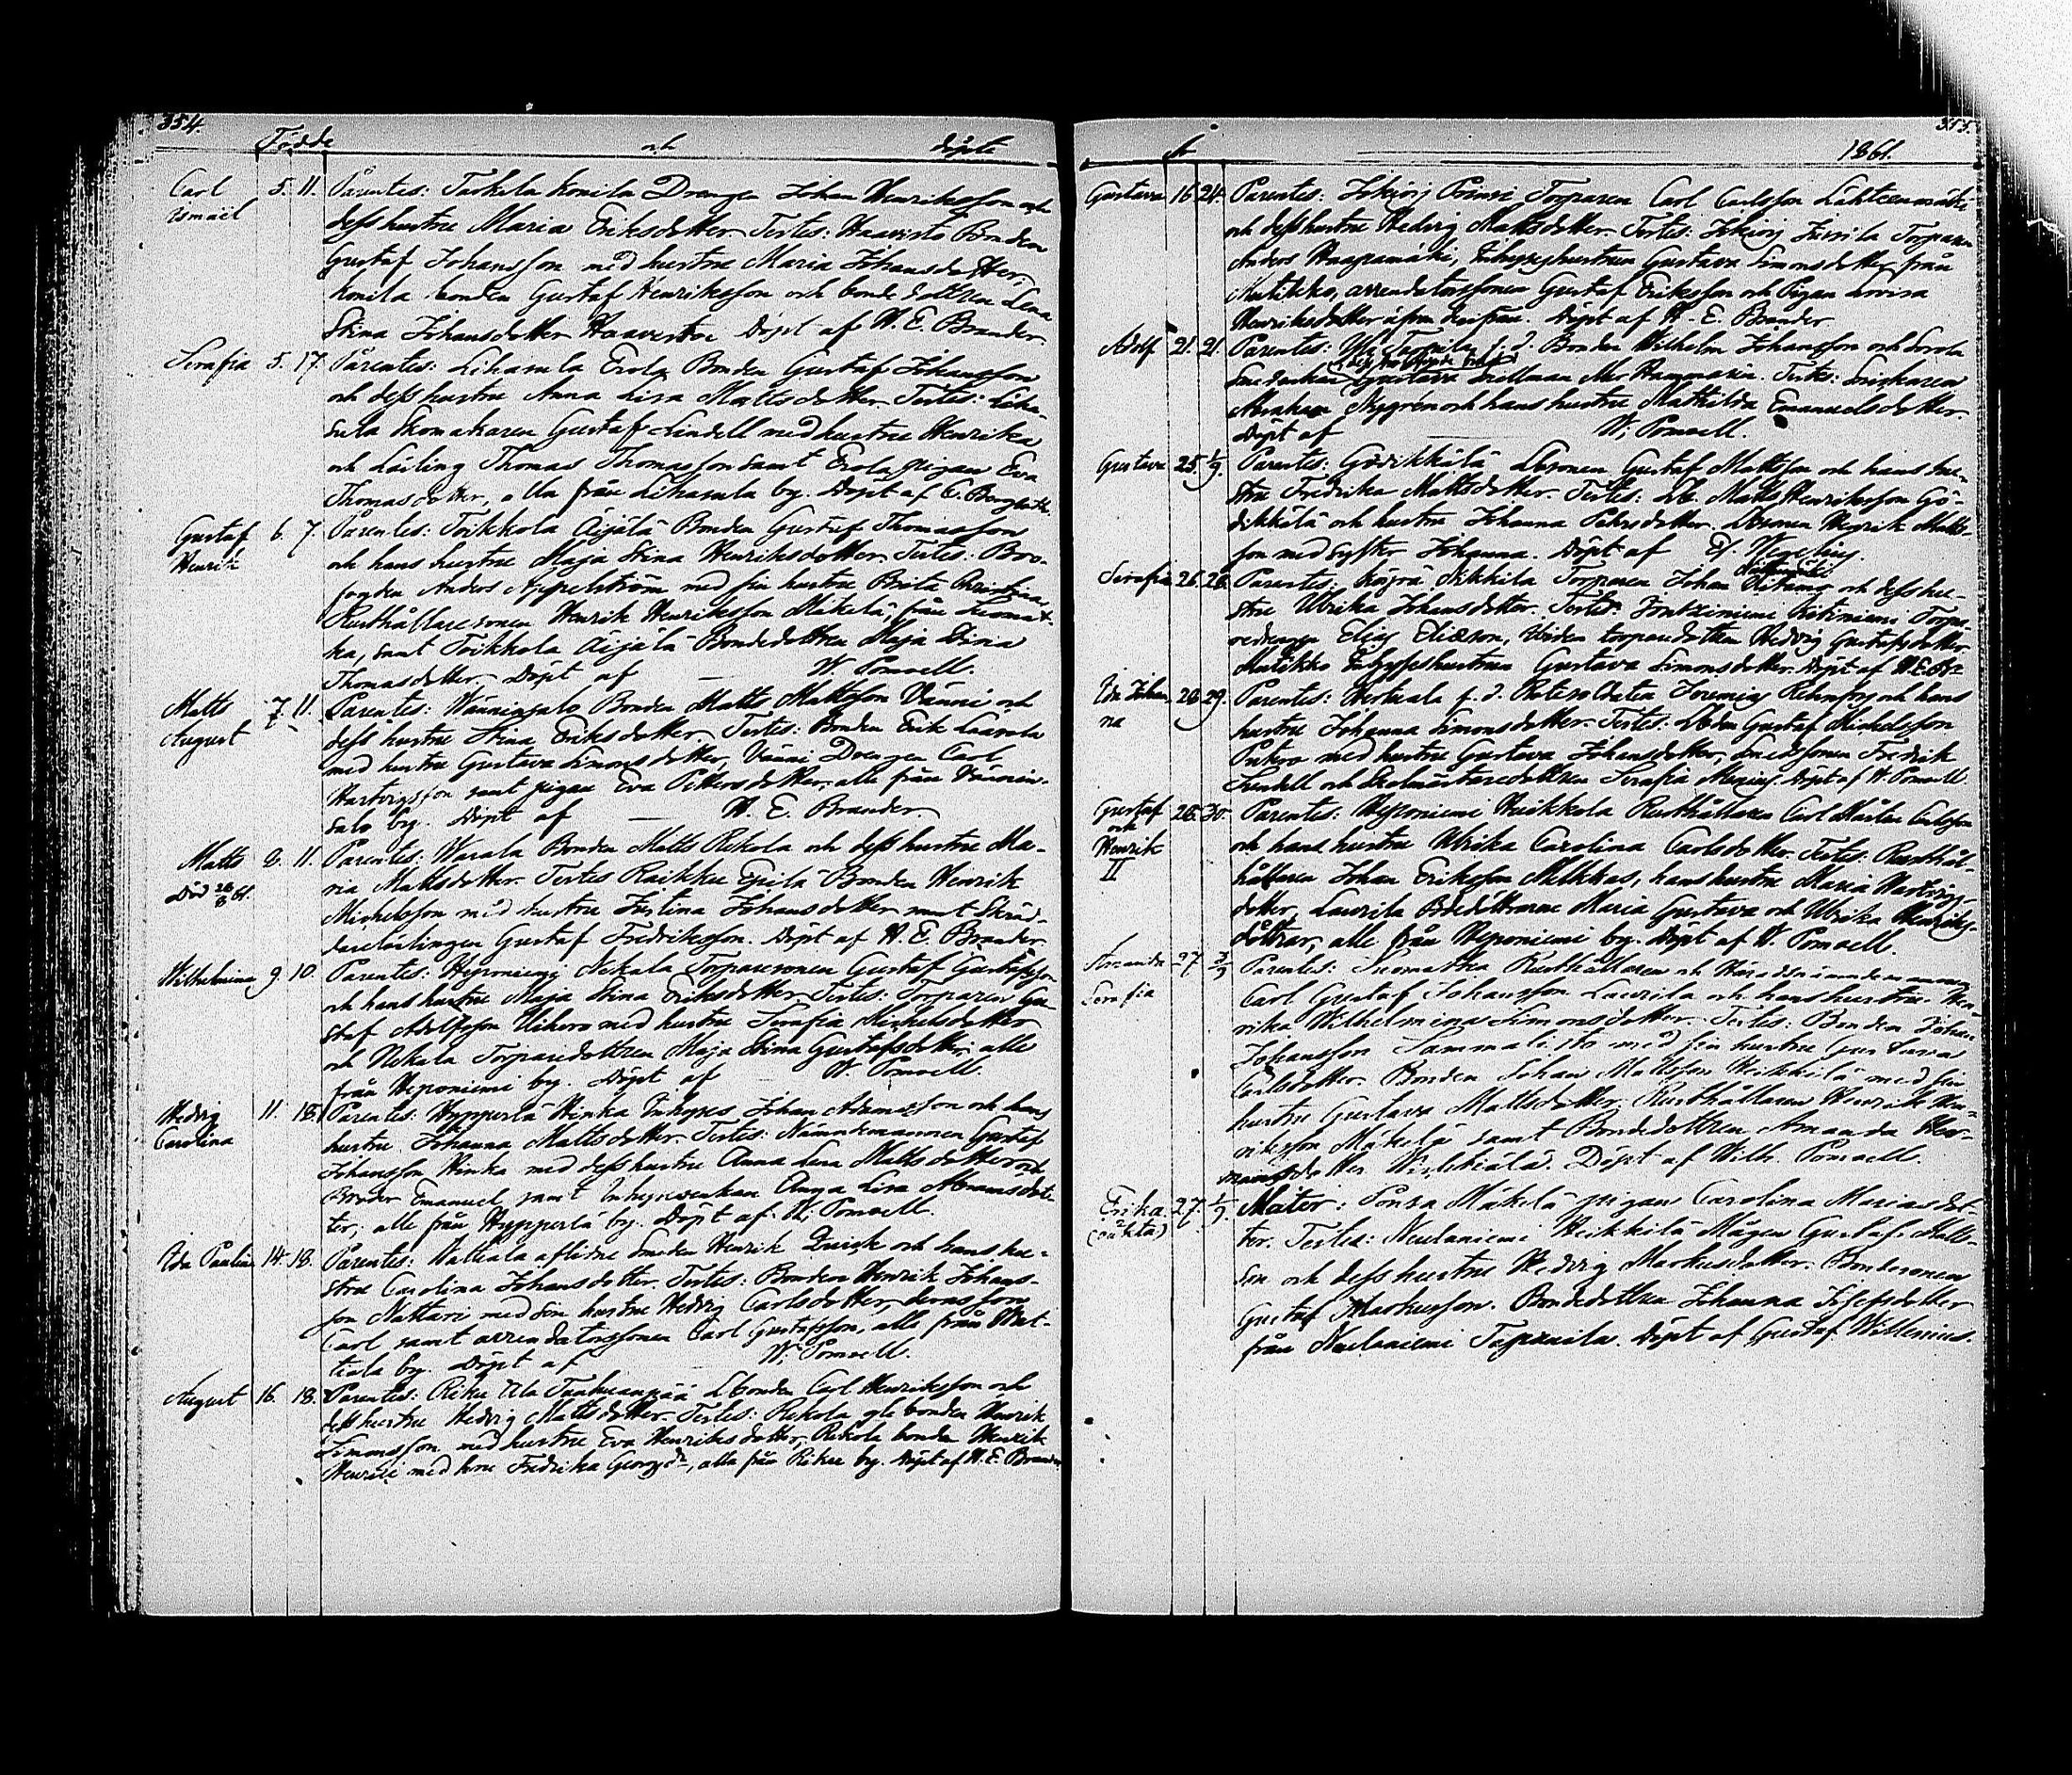 354.
Födde och döpte
Carl Ismaël 5. 11. Parentes: Tarkela Konila Drengen Johan Henriksson och
dess hustru Maria Eriksdotter Testes: Haavisto Bonden
Gustaf Johansson med hustru Maria Johansdotter,
Konila bonden Gustaf Henriksson och bonde dottren Lena
Stina Johansdotter Haavisto Döpt af H. E. Brander
Serafia 5. 17. Parentes: Lihasula Erola Bonden Gustaf Johansson
och dess hustru Anna Lisa Mattsdotter. Testes: Liha-
sula Skomakaren Gustaf Lindell med hustru Henrika
och Lärling Thomas Thomasson samt Erola pigan Eva
Thomasdotter, alla från Lihasula by. Döpt af C. Bergroth.
Gustaf Henrik 6. 7. Parentes: Toikkola Äijälä Bonden Gustaf Thomasson
och hans hustru Maja Stina Henriksdotter. Testes: Bro-
fogden Anders Appelström med sin hustru Brita Christina,
Rusthållaresonen Henrik Henriksson Mäkelä, från Suomat-
ka, samt Toikkola Äijälä Bondedottren Maja Stina
Thomasdotter. Döpt af W. Pomoell.
Matts August 7. 11. Parentes: Wänninsalo Bonden Matts Mattsson Vänni och
dess hustru Stina Eriksdotter. Testes: Bonden Erik Laavola
med hustru Gustava Simonsdotter, Vänni Drengen Carl
Hartvigsson samt pigan Eva Pettersdotter, alle från Vännin-
salo by. Döpt af H. E. Brander.
Matts 2. 11. Parentes: Warala Bonden Matts Rekola och dess hustru Ma-
Död 26/8 61. ria Mattsdotter. Testes Raikku Eerilä Bonden Henrik
Michelsson med hustru Justina Johansdotter samt Skräd-
darelärlingen Gustaf Fredriksson. Döpt af H. E. Brander
Wilhelmina 9. 10. Parentes: Heponiemi Nekala Torparesonen Gustaf Gustafsson
och hans hustru Maja Stina Eriksdotter Testes: Torparen Gu-
staf Adolfsson Uihero med hustru Serafia Michelsdotter
och Nekala Torparedottren Maja Stina Gustafsdotter; alle
från Heponiemi by. Döpt af W. Pomoell.
Hedvig Carolina 11. 18. Parentes: Hyyperlä Hinka Inhyses Johan Adamsson och hans
hustru Johanna Mattsdotter Testes: Nämndemannen Gustaf
Johansson Hinka med dess hustru Anna Lena Mattsdotter och
Broder Emanuel samt Inhyseenkan Anna Lisa Abramsdot-
ter, alle från Hyyperlä by. Döpt af W. Pomoell.
Ida Paulin 14. 18. Parentes: Wattiala aflidne Smeden Henrik Quick och hans hu-
stru Carolina Johansdotter. Testes: Bonden Henrik Johans-
son Nattari med sin hustru Hedvig Carlsdotter, deras son
Carl samt arrendatorssonen Carl Gustafsson, alle från Wat-
tiala by. Döpt af W. Pomoell.
August 16. 18. Parentes: Riku Tuukuanpää Lbonden Carl Henriksson och
dess hustru Hedvig Mattsdotter. Testes: Rekola gle bonden Henrik
Simonsson med hustru Eva Henriksdotter, Rekola bonden Henrik
Henric med hru Fredrika Georgsdr, alla från Riku by. Döpt af H. E. Brander
355.
År 1861.
Gustava 16 24. Parentes: Jokioj Torparen Carl Carlsson Lähteenmäki
och dess hustru Hedvig Mattsdotter. Testes: Jokioj Jussila Torparen
Anders Haapamäki, Inhyseshustrun Gustava Simonsdotter från
Mutikko, arrendatorssonen Gustaf Eriksson och Pigan Lovisa
Henriksdotter äfven derifrån. Döpt af H. E. Brander
Adolf 21. 21. Parentes: f. d. Bonden Wilhelm Johansson och
Smedenkan Gustava Snellman Testes: Snickaren
Abraham Nygrén och hans hustru Mathilda Emanuelsdotter.
Döpt af W. Pomoell.
Gustava 25. 1/9. Parentes: Gödikkälä Lbsonen Gustaf Mattsson och hans hu-
stru Fredrika Mattsdotter. Testes: Lb. Matts Henriksson Gö-
dikkälä och hustru Johanna Petersdotter. Lbsonen Henrik Matts-
son med syster Johanna. Döpt af Wegelius.
Serafia 26. 28. Parentes: Käyrä Nikkilä Torparen Johan och dess hu-
stru Ulrika Johansdotter. Testes: Torpa-
redrengen Elias Eliæson, Torparedottren Hedvig Gustafsdotter
Mutikko Inhyseshustrun Gustava Simonsdotter. Döpt af H. E. Br
Ida Johanna 26 29. Parentes: f. d. Reservsoldaten Jeremias Rehnfors och hans
hustru Johanna Simonsdotter. Testes: Lbden Gustaf Michelsson
med hustru Gustava Johansdotter, Smedssonen Fredrik
Lindell och Skolmästaredottren Serafia Döpt af W. Pomoell
Gustaf och Henrik II 28. 30. Parentes: Heponiemi Heikkola Rusthållaren Carl Mårten Carlsson
och hans hustru Ulrika Carolina Carlsdotter. Testes: Rusthål-
hållaren Johan Eriksson Mikkas, hans hustru Maria Hartvigs-
dotter, Laurila Bdedöttrarne Maria Gustava och Ulrika Henriks-
döttrar, alle från Heponiemi by. Döpt af W. Pomoell.
Amanda Serafia 27 3/9 Parentes: Suomatka Rusthållaren och Häradsnämndemannen
Carl Gustaf Johansson Laurila och hans hustru Hen-
rika Wilhelmina Simonsdotter. Testes: Bonden Johan
Johansson Sammalisto med sin hustru Gustava
Carlsdotter. Bonden Johan Mattsson Heikkilä med sin
hustru Gustava Mattsdotter. Rusthållaren Henrik Hen-
riksson Mäkelä samt Bondedottren Amanda Her-
mansdotter Döpt af Wilh. Pomoell.
Erika (oäkta) 27. 1/9. Mater: Ponsa Mäkelä pigan Carolina Mariasdot-
ter. Testes: Neulaniemi Heikkilä Mågen Gustaf Matts-
son och dess hustru Hedvig Markusdotter. Bondesonen
Gustaf Markusson. Bondedottren Johanna Josefsdotter
från Neulaniemi Tapanila. Döpt af Gustaf Willenius.